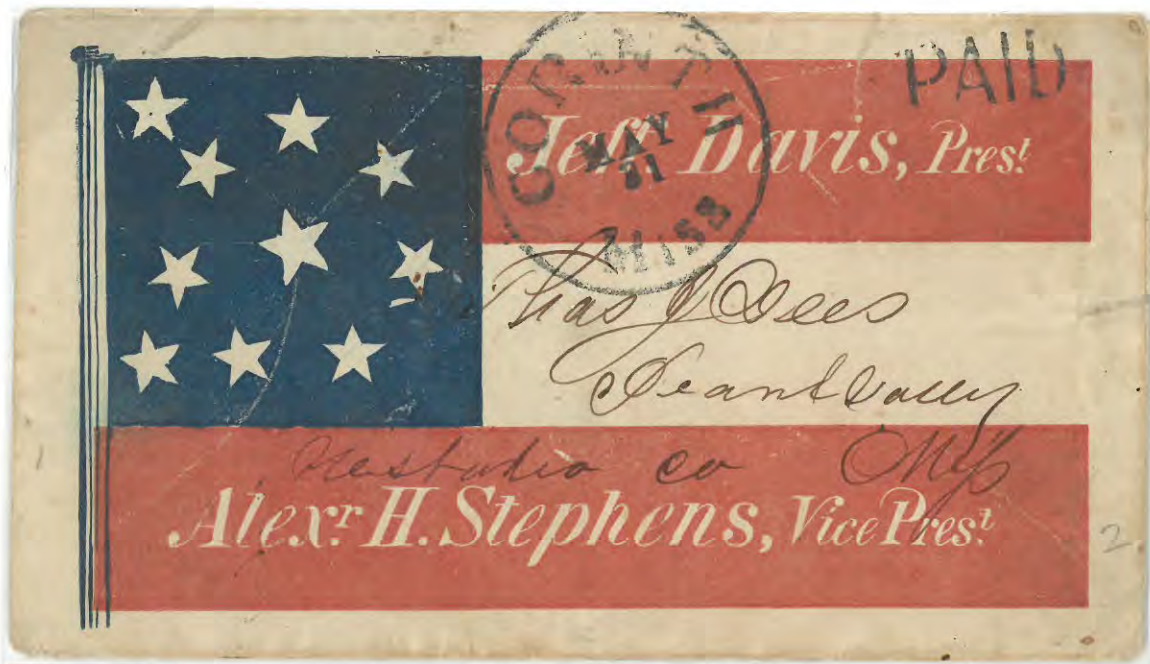 CORINTH
MAY
21
MISS
PAID
Jeff Davis, Pres.t
Thos J Dees
Valley
co Miss
Alex.r H. Stephens, Vice Pres.t
1
2